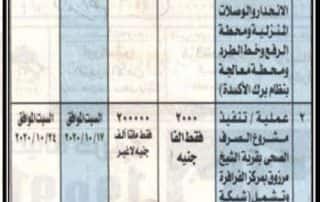 الانحدار والوصلات
المنزلية ومحطة
الرفع وخط الطرد
ومحطة معالجة
بنظام برك الأكسدة)
٢
عملية / تنفيذ
مشروع الصرف
الصحى بقرية الشيخ
مرزوق بمركز الفرافرة
وتشمل (شبكة
٢٠٠٠
فقط الفا
جنيه
٢٠٠٠٠٠
فقط مائتا ألف
جنيه لاغير
السبت الموافق
٢٠٢٠/١٠/١٧
السبت الموافق
٢٠٢٠/١٠/٢٤